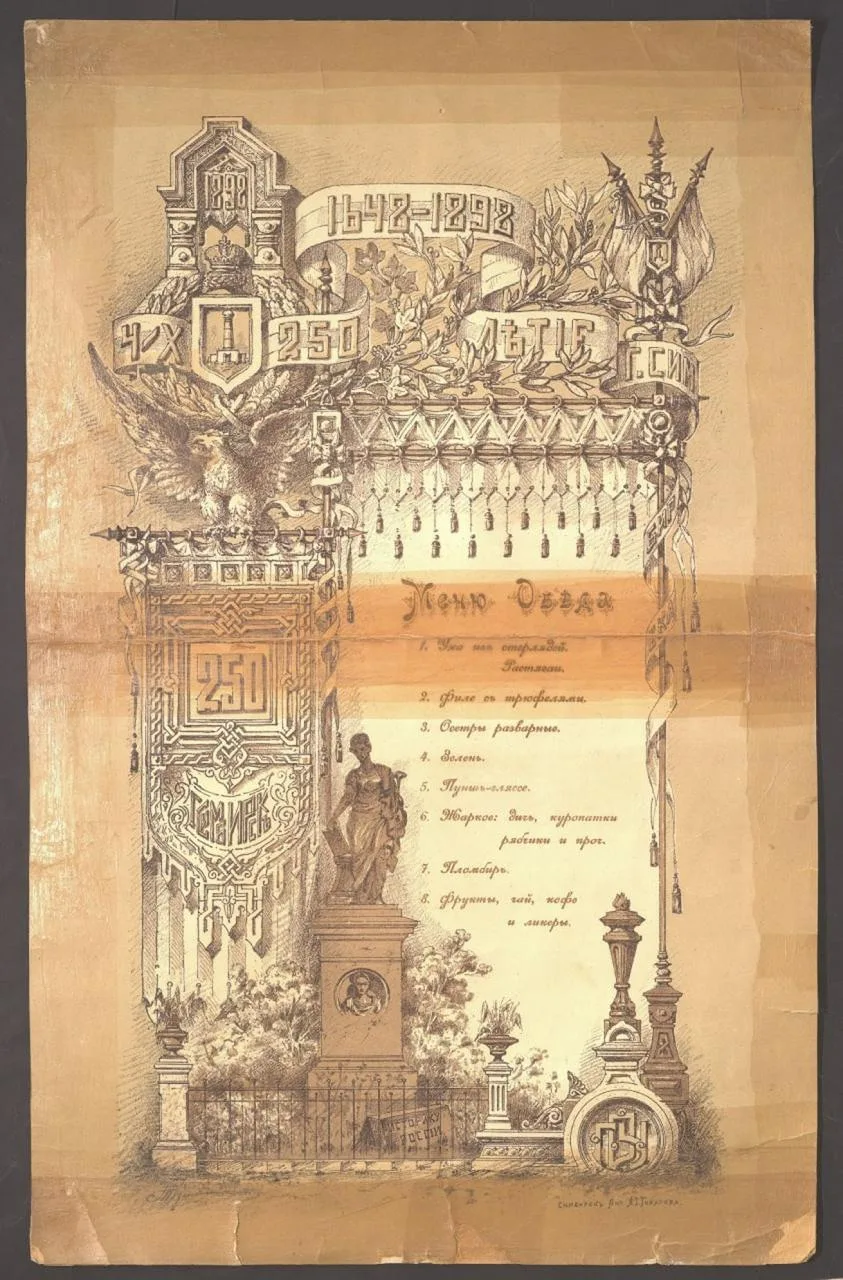 1898
1648-1898
4-Х 250 ЛѢТІЕ Г. СИМ
250
Меню Обѣда
1. Уха изъ стерлядей.
Растягаи.
2. Филе съ трюфелями.
3. Осетры разварные.
4. Зелень.
5. Пуншъ-гляссе.
6. Жаркое: дичь, куропатки
рябчики и проч.
7. Пломбиръ.
8. Фрукты, чай, кофе
и ликеры.
РОССІИ
СИМБИРСКЪ